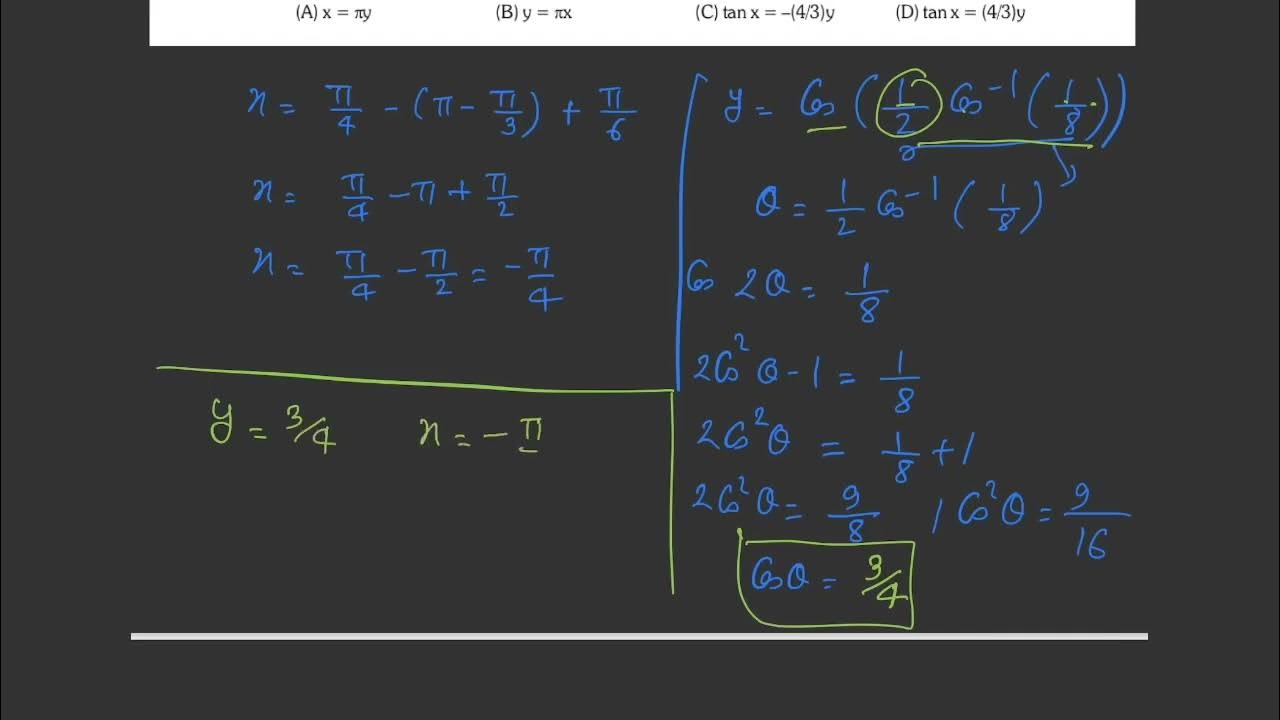 (A) x = πy (B) y = πx (C) tan x = –(4/3)y (D) tan x = (4/3)y
x = π/4 - (π - π/3) + π/6
x = π/4 - π + π/2
x = π/4 - π/2 = -π/4
y = 3/4 x = - π
y = Cos (1/2 Cos^-1 (1/8))
θ = 1/2 Cos^-1 (1/8)
Cos 2θ = 1/8
2Cos²θ - 1 = 1/8
2Cos²θ = 1/8 + 1
2Cos²θ = 9/8 / Cos²θ = 9/16
Cosθ = 3/4